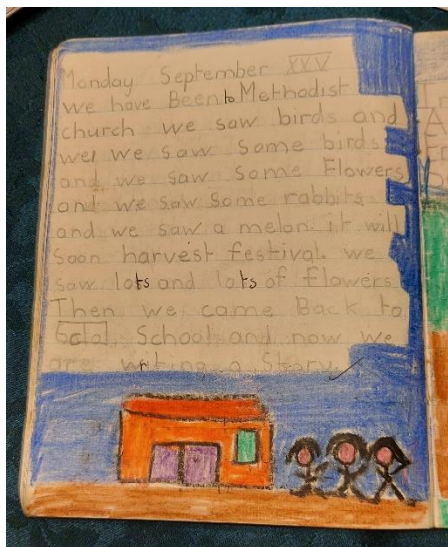 Monday September XXV
we have Been to Methodist
church we saw birds and
we we saw some birds
and we saw some Flowers
and we saw some rabbits
and we saw a melon. it will
soon harvest festival. we
saw lots and lots of flowers
Then we came Back to
School and now we
are writing a Story